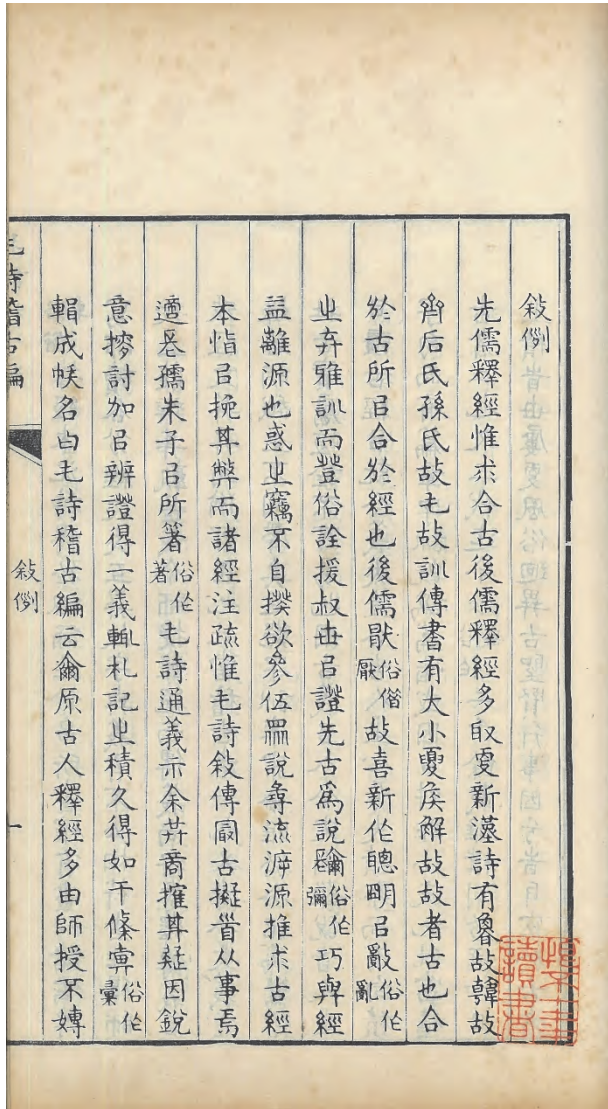 敍例
先儒釋經惟求合古後儒釋經多取㪅新漢詩有魯故韓故
齊后氏孫氏故毛故訓傳書有大小夏矦解故故者古也合
於古所㠯合於經也後儒猒俗偕厭故喜新作聰朙㠯敵俗作亂
㞢弃雅訓而登俗詮援叔世㠯證先古爲說俗作彌巧與經
益離源也惑㞢竊不自揆欲參伍衆說尋流溯源推求古經
本恉㠯挽其弊而諸經注疏惟毛詩敍傳㝡古擬首从事焉
適長孺朱子㠯所箸俗作著毛詩通義示余幷商搉其疑因銳
意搜討加㠯辨證得一義輒札記㞢積久得如干條彚俗作彙
輯成帙名曰毛詩稽古編云爾原古人釋經多由師授不嫥
毛詩稽古編
敍例
一
讀書